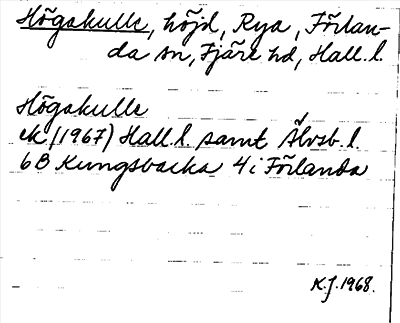 Högakulle, höjd, Rya, Förlan-
da sn, Fjäre hd, Hall. l.
Högakulle
ek. (1967) Hall. l. samt Älvsb. l.
6B Kungsbacka 4i Förlanda
K.J. 1968.